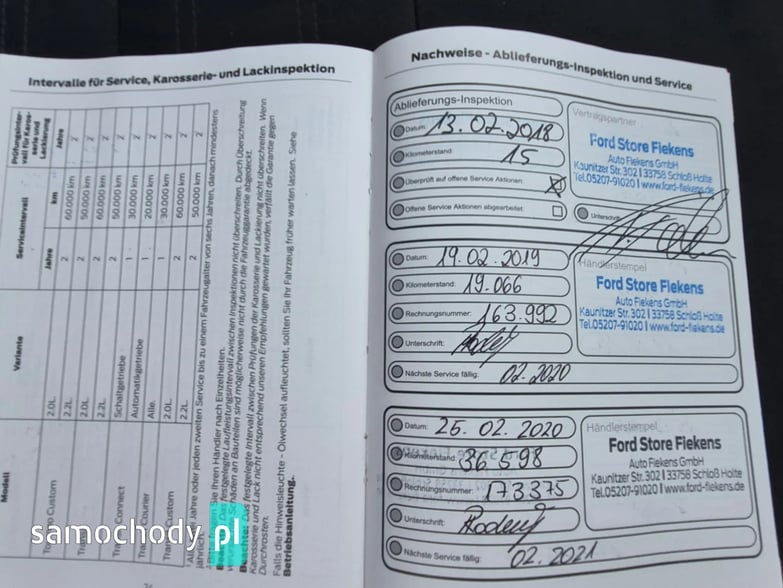 Intervalle für Service, Karosserie- und Lackinspektion
Modell
Variante
Serviceintervall
Jahre
km
Prüfungsinter-
vall für Karos-
serie und
Lackierung
Jahre
Custom
2.0L.
2
60.000 km
2
2.2L.
2
50.000 km
2
2.0L.
2
60.000 km
2
2.2L.
2
50.000 km
2
Connect
Schaltgetriebe
1
30.000 km
2
Automatikgetriebe
1
20.000 km
2
Courier
Alle.
1
30.000 km
2
Custom
2.0L.
2
60.000 km
2
2.2L.
2
50.000 km
2
Jahre oder jeden zweiten Service bis zu einem Fahrzeugalter von sechs Jahren, danach mindestens
jährlich.
Sie Ihren Händler nach Einzelheiten.
Das festgelegte Laufleistungsintervall zwischen Inspektionen nicht überschreiten. Durch Überschreitung
Schäden an Bauteilen sind möglicherweise nicht durch die Fahrzeuggarantie abgedeckt.
Beachte: Das festgelegte Intervall zwischen Prüfungen der Karosserie und Lackierung nicht überschreiten. Wenn
Karosserie und Lack nicht entsprechend unseren Empfehlungen gewartet wurden, verfällt die Garantie gegen
Durchrosten.
Falls die Hinweisleuchte - Ölwechsel aufleuchtet, sollten Sie Ihr Fahrzeug früher warten lassen. Siehe
Betriebsanleitung.
Nachweise - Ablieferungs-Inspektion und Service
Ablieferungs-Inspektion
Datum: 13.02.2018
Kilometerstand: 15
Überprüft auf offene Service Aktionen:
Offene Service Aktionen abgearbeitet:
Vertragspartner
Ford Store Fiekens
Auto Fiekens GmbH
Kaunitzer Str. 302 | 33758 Schloß Holte
Tel.05207-91020 | www.ford-fiekens.de
Unterschrift:
Datum: 19.02.2019
Kilometerstand: 19.066
Rechnungsnummer: 163.992
Unterschrift:
Nächste Service fällig: 02.2020
Händlerstempel
Ford Store Fiekens
Auto Fiekens GmbH
Kaunitzer Str. 302 | 33758 Schloß Holte
Tel.05207-91020 | www.ford-fiekens.de
Datum: 25.02.2020
Kilometerstand: 36.598
Rechnungsnummer: 173375
Unterschrift:
Nächste Service fällig: 02.2021
Händlerstempel:
Ford Store Fiekens
Auto Fiekens GmbH
Kaunitzer Str. 302 | 33758 Schloß Holte
Tel.05207-91020 | www.ford-fiekens.de
samochody.pl